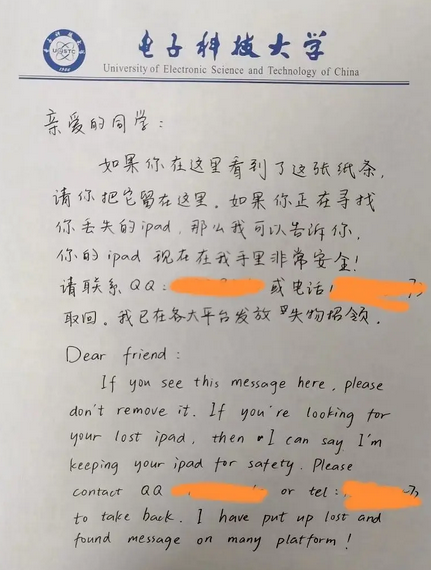 电子科技大学
University of Electronic Science and Technology of China
亲爱的同学：
如果你在这里看到了这张纸条，
请你把它留在这里。如果你正在寻找
你丢失的ipad，那么我可以告诉你，
你的ipad 现在在我手里非常安全！
请联系QQ： 或电话：
取回。我已在各大平台发放 失物招领.
Dear friend :
If you see this message here, please
don't remove it. If you're looking for
your lost ipad, then I can say I'm
keeping your ipad for safety. Please
contact QQ or tel :
to take back. I have put up lost and
found message on many platform !